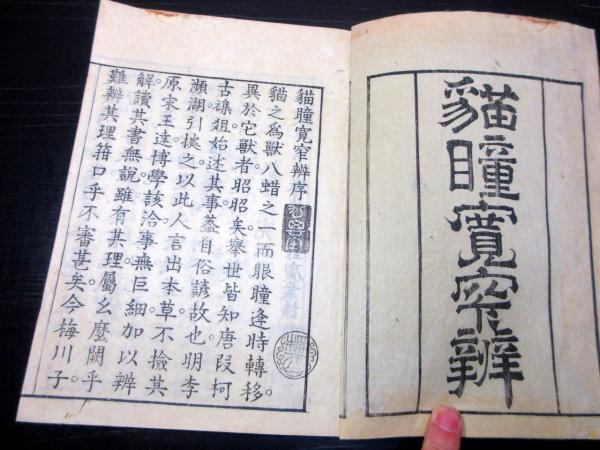 貓瞳寬窄辨
貓瞳寬窄辨序
貓之爲獸八蜡之一而眼瞳逐時轉移。
異於它獸者昭昭矣。舉世皆知唐段柯
古襍俎始述其事。蓋自俗諺故也。明李
瀕湖引援之以此人言出本草不撿其
原。宋王逵博學該洽事無巨細加以辨
解。讀其書無說。雖有其理屬幺麼闕乎
難辨其理箝口乎。不審甚矣。今梅川子